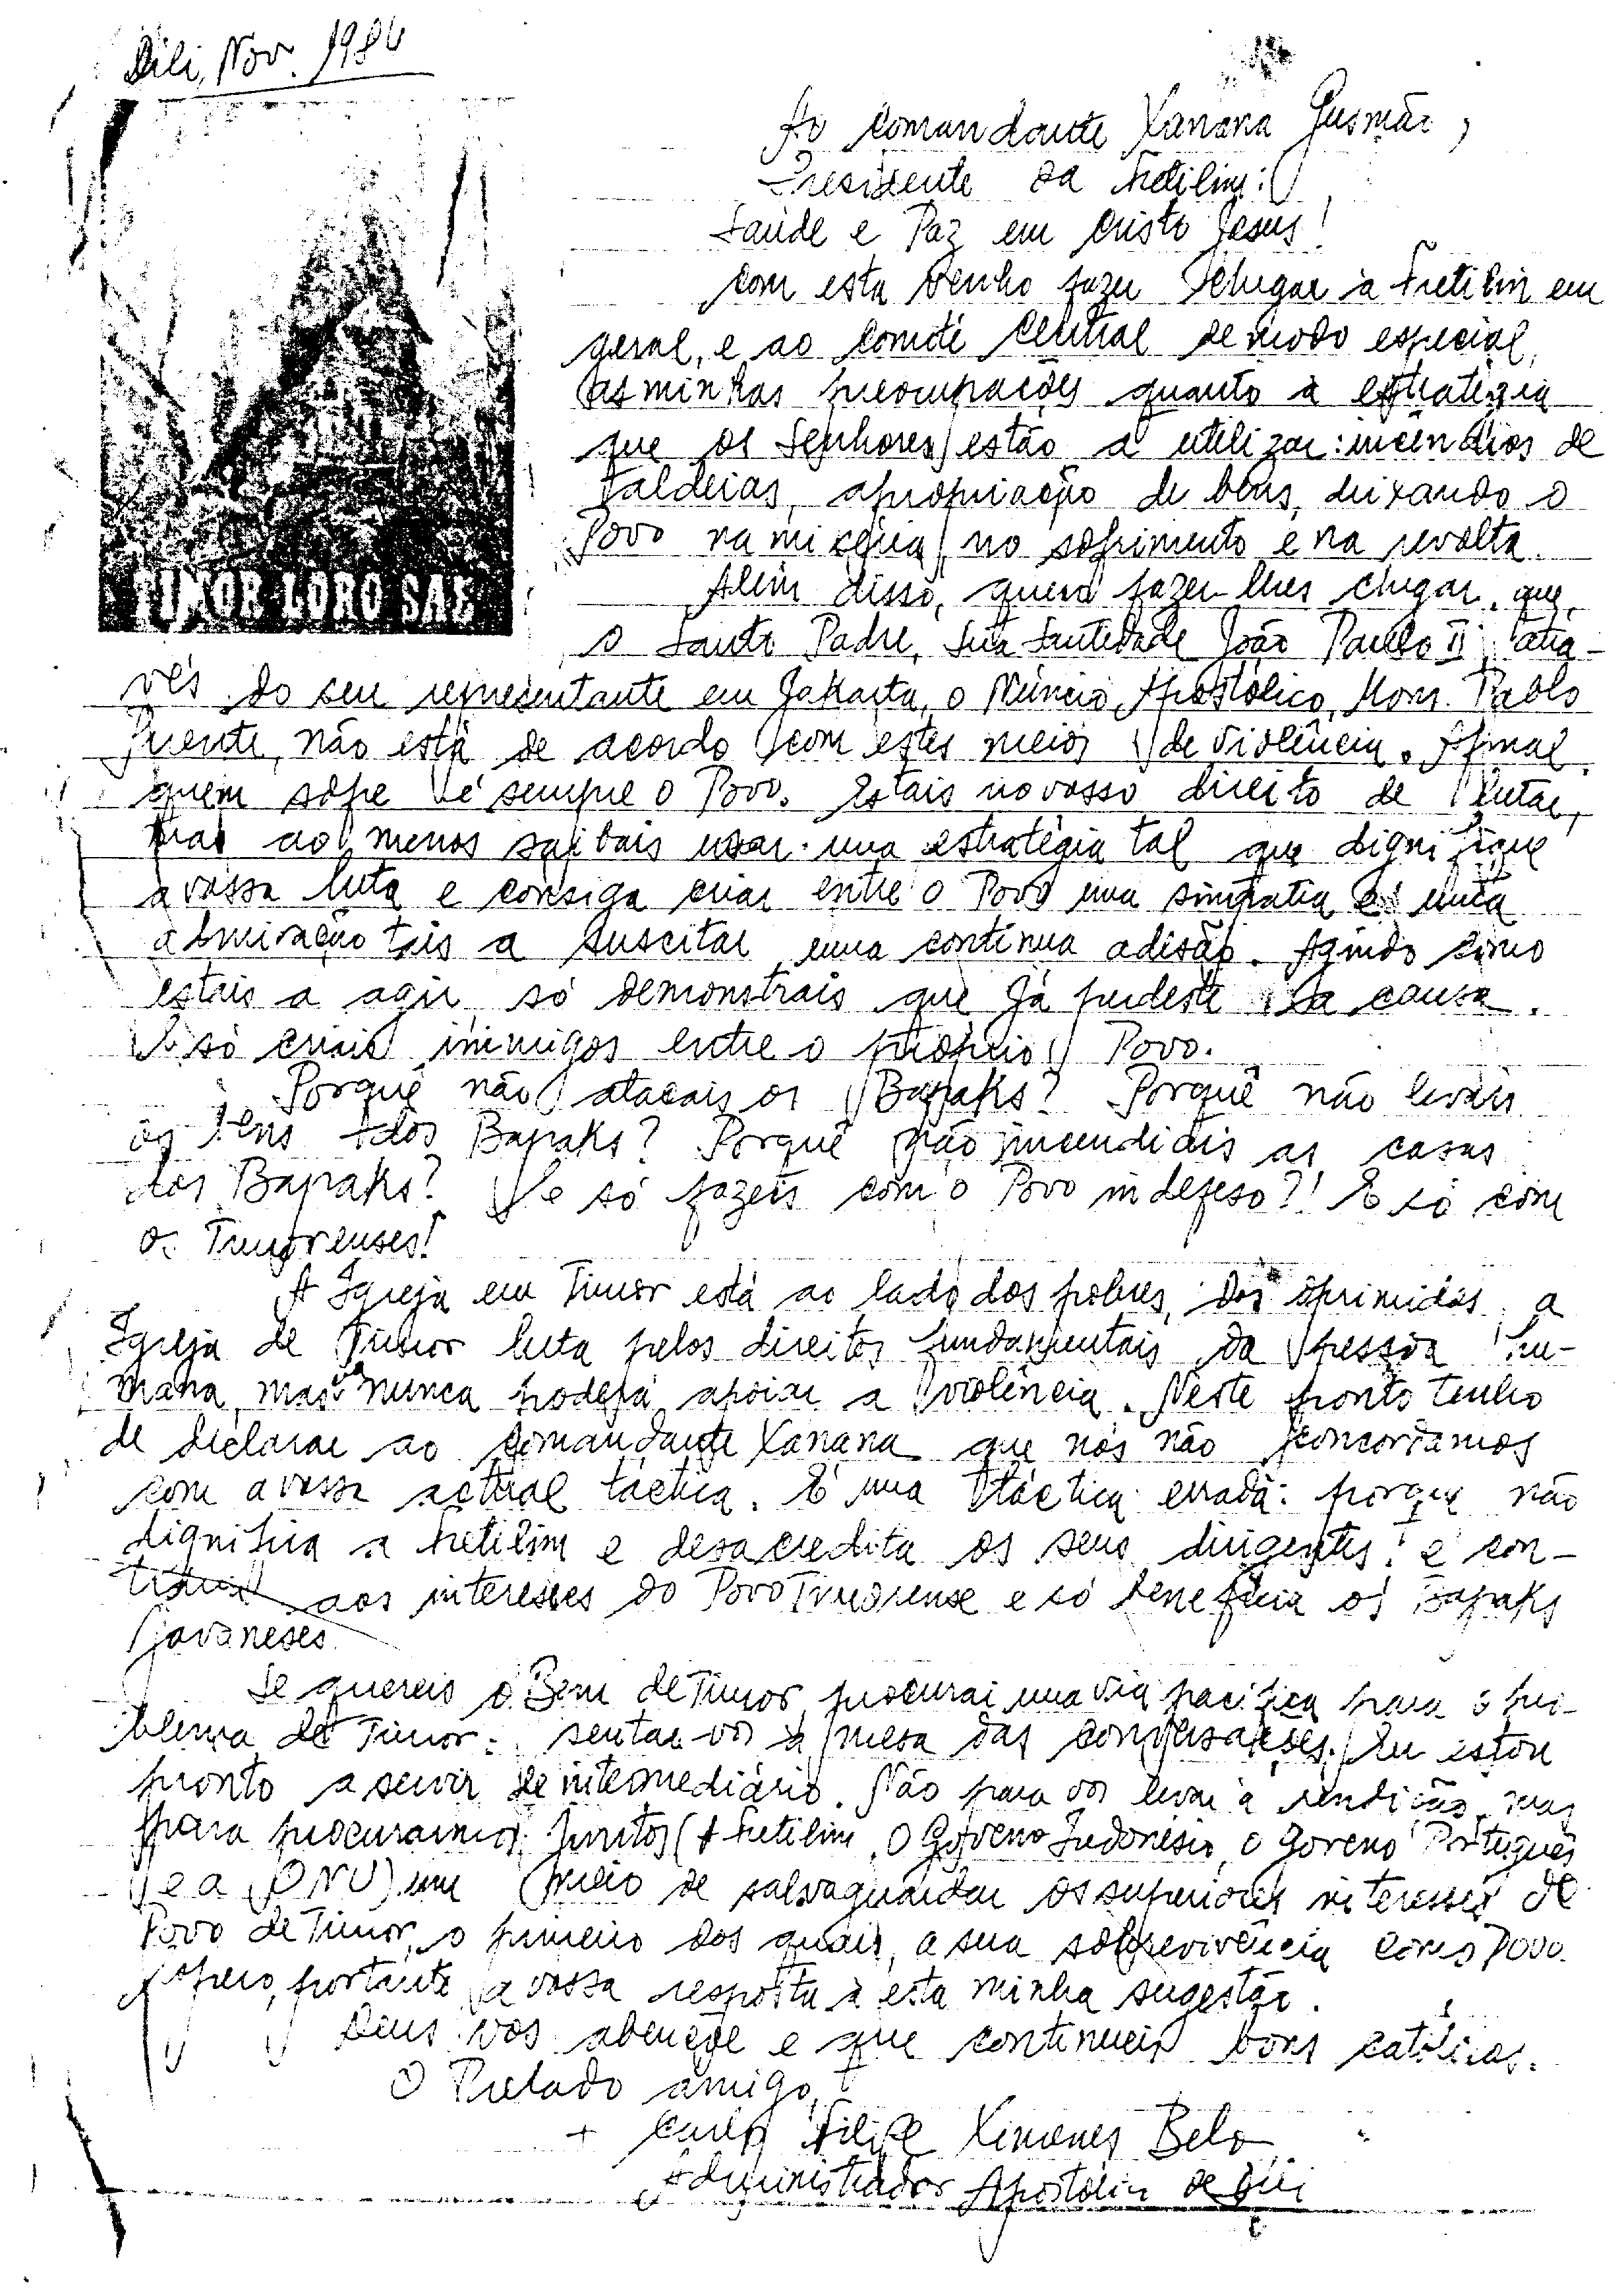 Dili, Nov. 1986
Ao Comandante Xanana Gusmão,
Presidente da Fretilin:
Saúde e Paz em Cristo Jesus!
Com esta venho fazer chegar à Fretilin em
geral, e ao Comité Central de modo especial,
as minhas preocupações quanto à estratégia
que os Senhores estão a utilizar: incêndios de
aldeias, apropriação de bens, deixando o
Povo na miséria, no sofrimento e na revolta.
Além disso, quero fazer-lhes chegar, que,
TIMOR LORO SAE
o Santo Padre, Sua Santidade João Paulo II, atra-
vés do seu representante em Jakarta, o Núncio Apostólico, Mons. Pablo
Puente, não está de acordo com estes meios de violência. Afinal
quem sofre é sempre o Povo. Estais no vosso direito de lutar,
mas ao menos saibais usar uma estratégia tal que dignifique
a vossa luta e consiga criar entre o Povo uma simpatia e uma
admiração tais a suscitar uma contínua adesão. Agindo como
estais a agir só demonstrais que já perdeste a causa.
E só criais inimigos entre o próprio Povo.
Porquê não atacais os Bapaks? Porquê não levais
os bens dos Bapaks? Porquê não incendiais as casas
dos Bapaks? E só fazeis com o Povo indefeso?! E só com
os Timorenses!
A Igreja em Timor está ao lado dos pobres, dos oprimidos, a
Igreja de Timor luta pelos direitos fundamentais da pessoa hu-
mana, mas nunca poderá apoiar a violência. Neste ponto tenho
de declarar ao Comandante Xanana que nós não concordamos
com a vossa actual táctica. É uma táctica errada: porque não
dignifica a Fretilin e desacredita os seus dirigentes: é con-
trária aos interesses do Povo Timorense e só beneficia os Bapaks
javaneses.
Se quereis o Bem de Timor, procurai uma via pacífica para o pro-
blema de Timor: sentar-vos à mesa das conversações. Eu estou
pronto a servir de intermediário. Não para vos levar à rendição, mas
para procurarmos juntos (A Fretilin, O Governo Indonésio, o Governo Português
e a ONU) um meio de salvaguardar os superiores interesses do
Povo de Timor, o primeiro dos quais, a sua sobrevivência como Povo.
Espero, portanto a vossa resposta a esta minha sugestão.
Deus vos abençoe e que continueis bons católicos.
O Prelado amigo,
+ Carlos Filipe Ximenes Belo
Administrador Apostólico de Dili